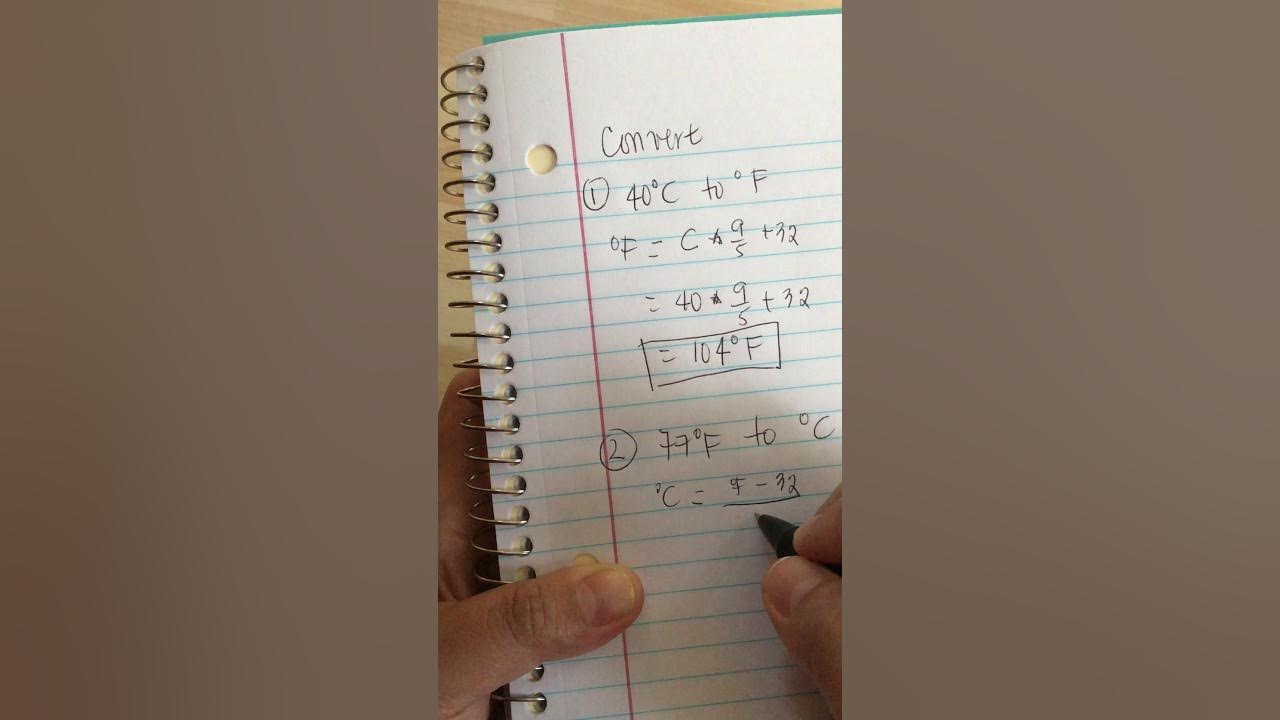 Convert
① 40°C to °F
°F = C * 9/5 + 32
= 40 * 9/5 + 32
= 104°F
② 77°F to °C
°C = °F - 32